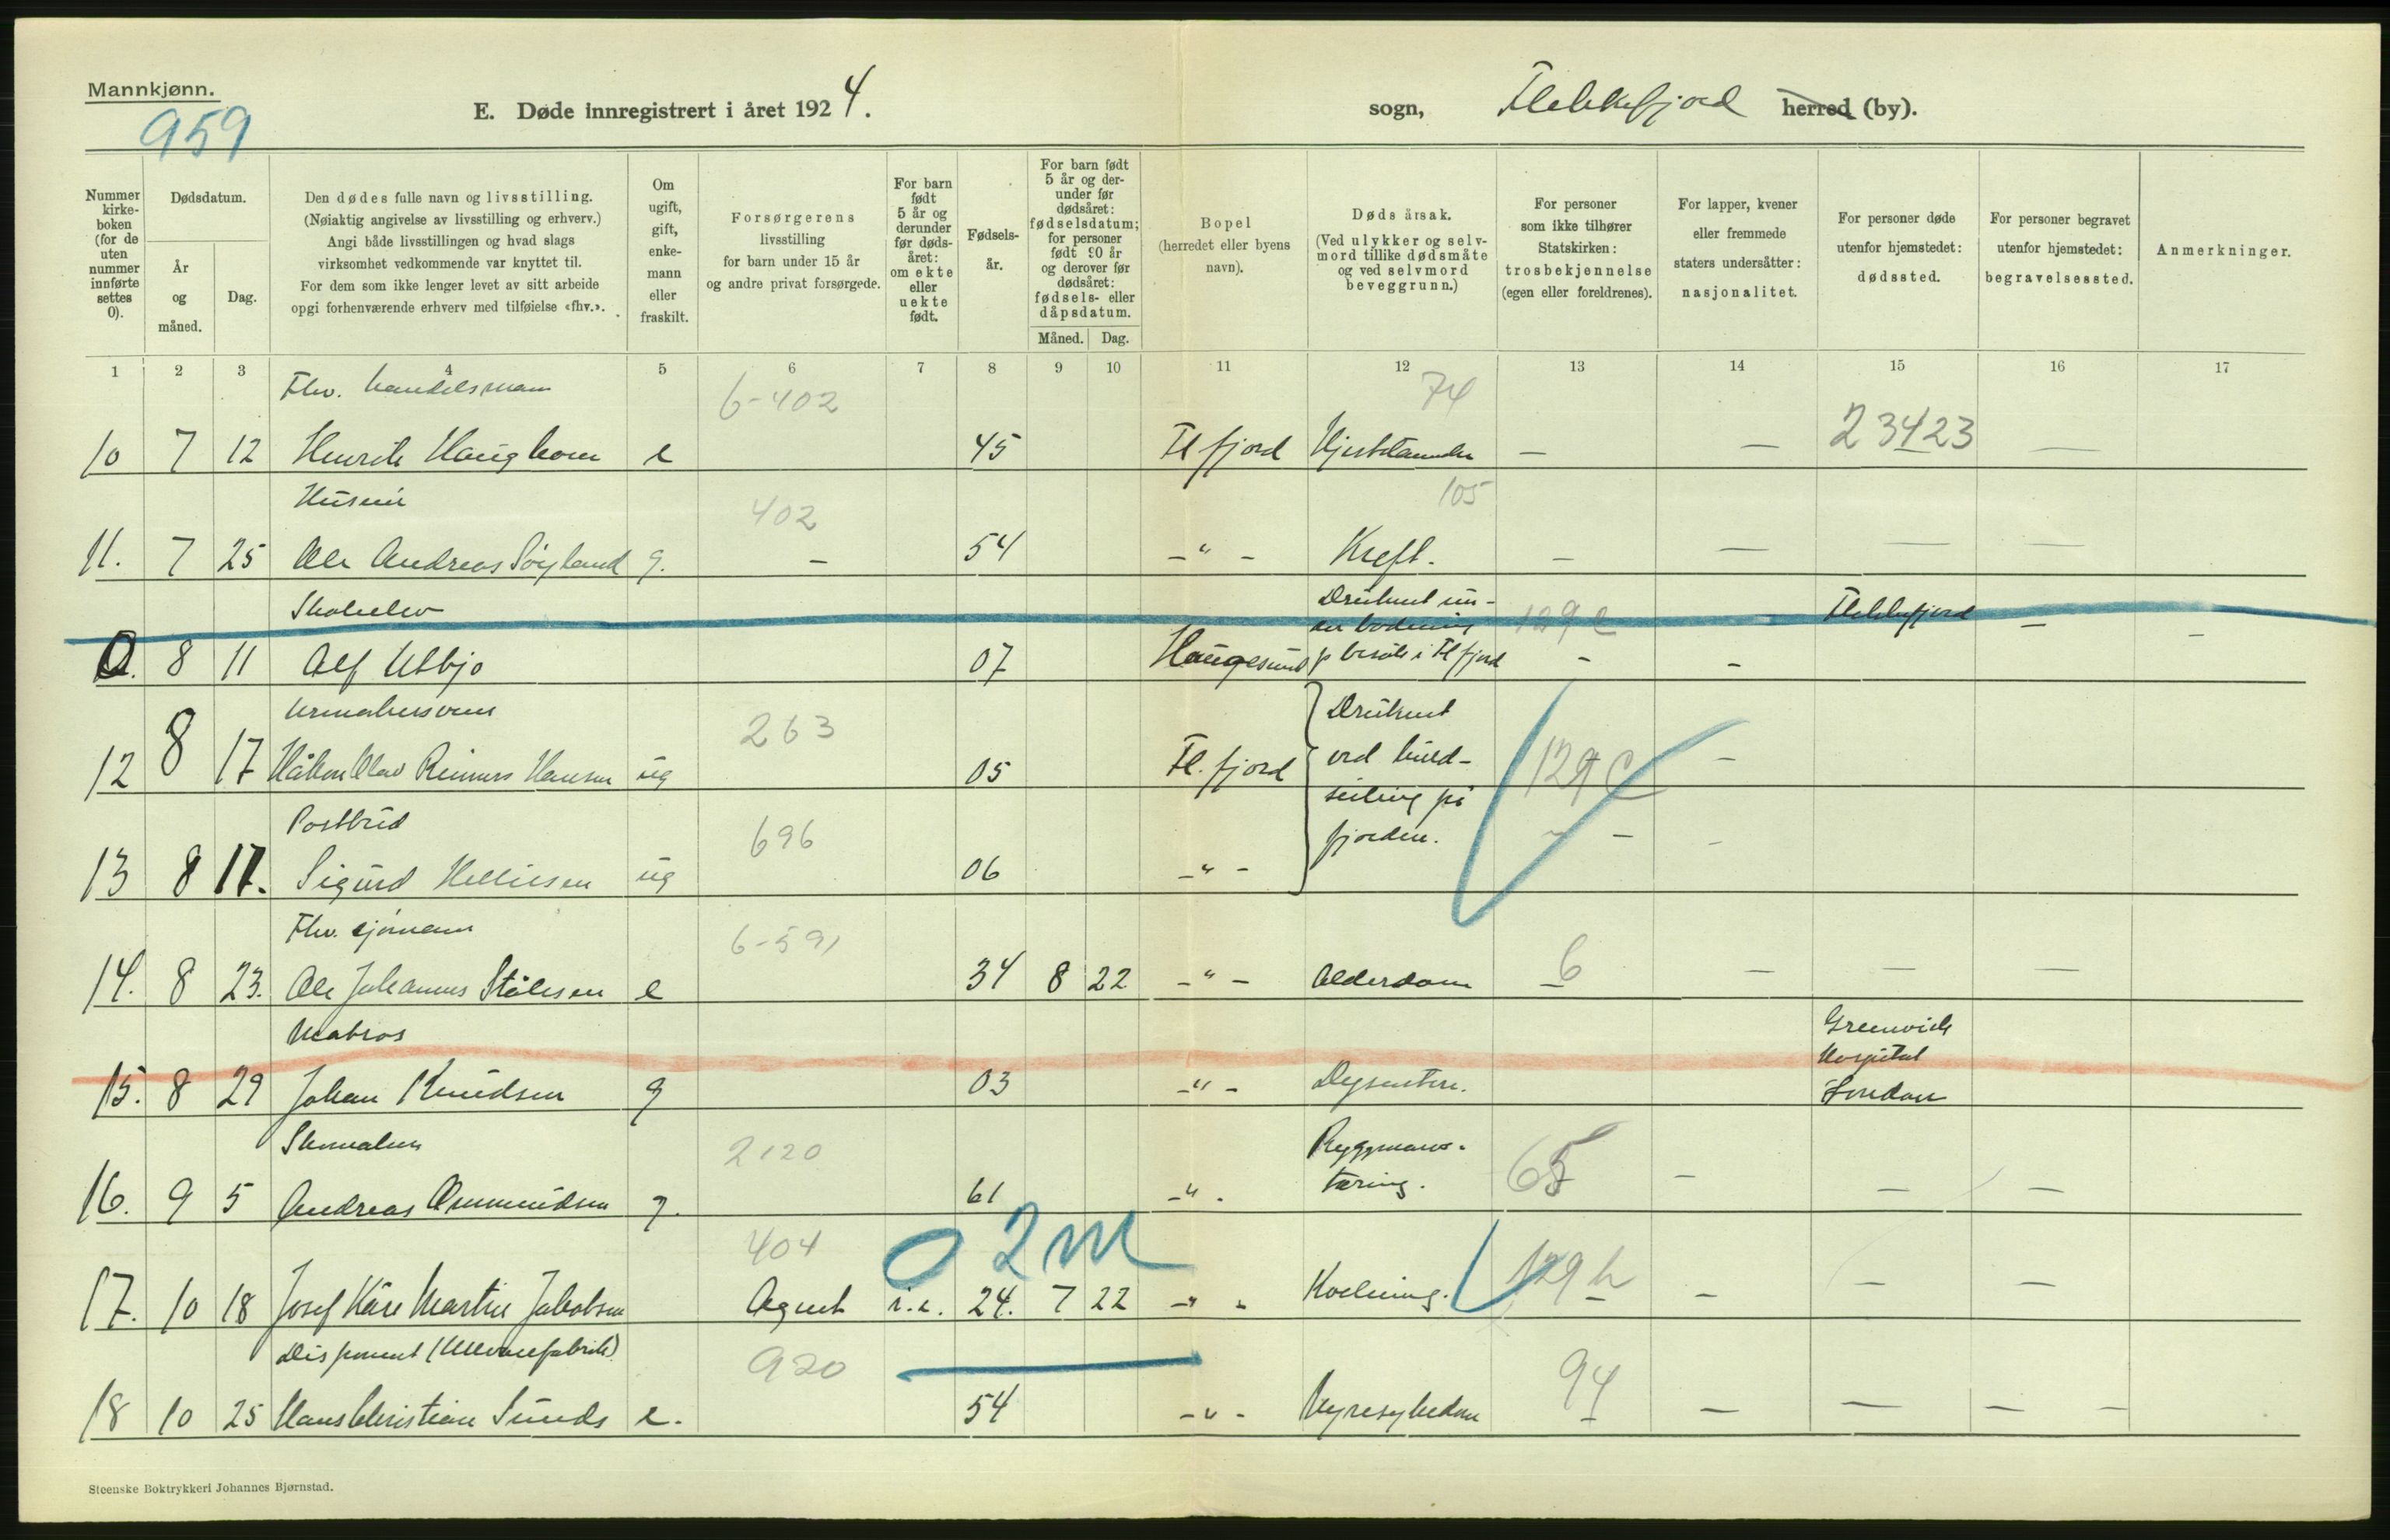 Mannkjønn.
959
E. Døde innregistrert i året 1924.
sogn, Flekkefjord herred (by).
Nummer kirke-boken (for de uten nummer innførte settes 0).
Dødsdatum.
År og måned.
Dag.
Den dødes fulle navn og livsstilling.
(Nøiaktig angivelse av livsstilling og erhverv.)
Angi både livsstillingen og hvad slags
virksomhet vedkommende var knyttet til.
For dem som ikke lenger levet av sitt arbeide
opgi forhenværende erhverv med tilføielse «fhv.».
Om ugift, gift, enke-mann eller fraskilt.
Forsørgerens
livsstilling
for barn under 15 år
og andre privat forsørgede.
For barn født 5 år og derunder før døds-året: om ekte eller uekte født.
Fødsels-år.
For barn født 5 år og der-under før dødsåret: fødselsdatum; for personer født 90 år og derover før dødsåret: fødsels- eller dåpsdatum.
Måned. Dag.
Bopel
(herredet eller byens
navn).
Dødsårsak.
(Ved ulykker og selv-
mord tillike dødsmåte
og ved selvmord
beveggrunn.)
For personer
som ikke tilhører
Statskirken:
trosbekjennelse
(egen eller foreldrenes).
For lapper, kvener
eller fremmede
staters undersåtter:
nasjonalitet.
For personer døde
utenfor hjemstedet:
dødssted.
For personer begravet
utenfor hjemstedet:
begravelsessted.
Anmerkninger.
1 2 3 4 5 6 7 8 9 10 11 12 13 14 15 16 17
Fhv. handelsmann 6-402 74
10 7 12 Henrik Haughom e 45 Fl fjord — — 23423 —
402 105
11. 7 25 Ole Andreas g. — 54 -"- Kreft. — — — —
Skoleelev Druknet un-
der badning 129 c Flekkefjord —
0. 8 11 Alf Utbjo 07 Haugesund på besøk i Fl fjord - - -
Urmakersvenn 263 Druknet
12 8 17 Håkon Olav Reimers Hansen ug 05 Fl. fjord ved kuld- 129 c -
Postbud 696 seiling på
fjorden. - - -
13 8 17. Sigurd Hellesen ug 06 -"-
Fhv. sjømann 6-591
14. 8 23. Ole Johannes Stålesen e 34 8 22 -"- Alderdom 6 — — —
Matros Greenwich
Hospital
15. 8 29 Johan Knudsen g 03 -"- Dysenteri. London
Skomaker 2120 Ryggmarvs-
16. 9 5 Andreas Ommundsen g. 61 -"- tæring. 65 - — —
404 0 2 m
17. 10 18 Josef Kåre Martin Jakobsen Agent i.e. 24. 7 22 -"- Kvelning. 129 h - — —
Disponent (Ullvarefabrik) 920
18 10 25 Hans Christian Sunds e. 54 -"- Nyresykdom 94 — — — —
Steenske Boktrykkeri Johannes Bjørnstad.